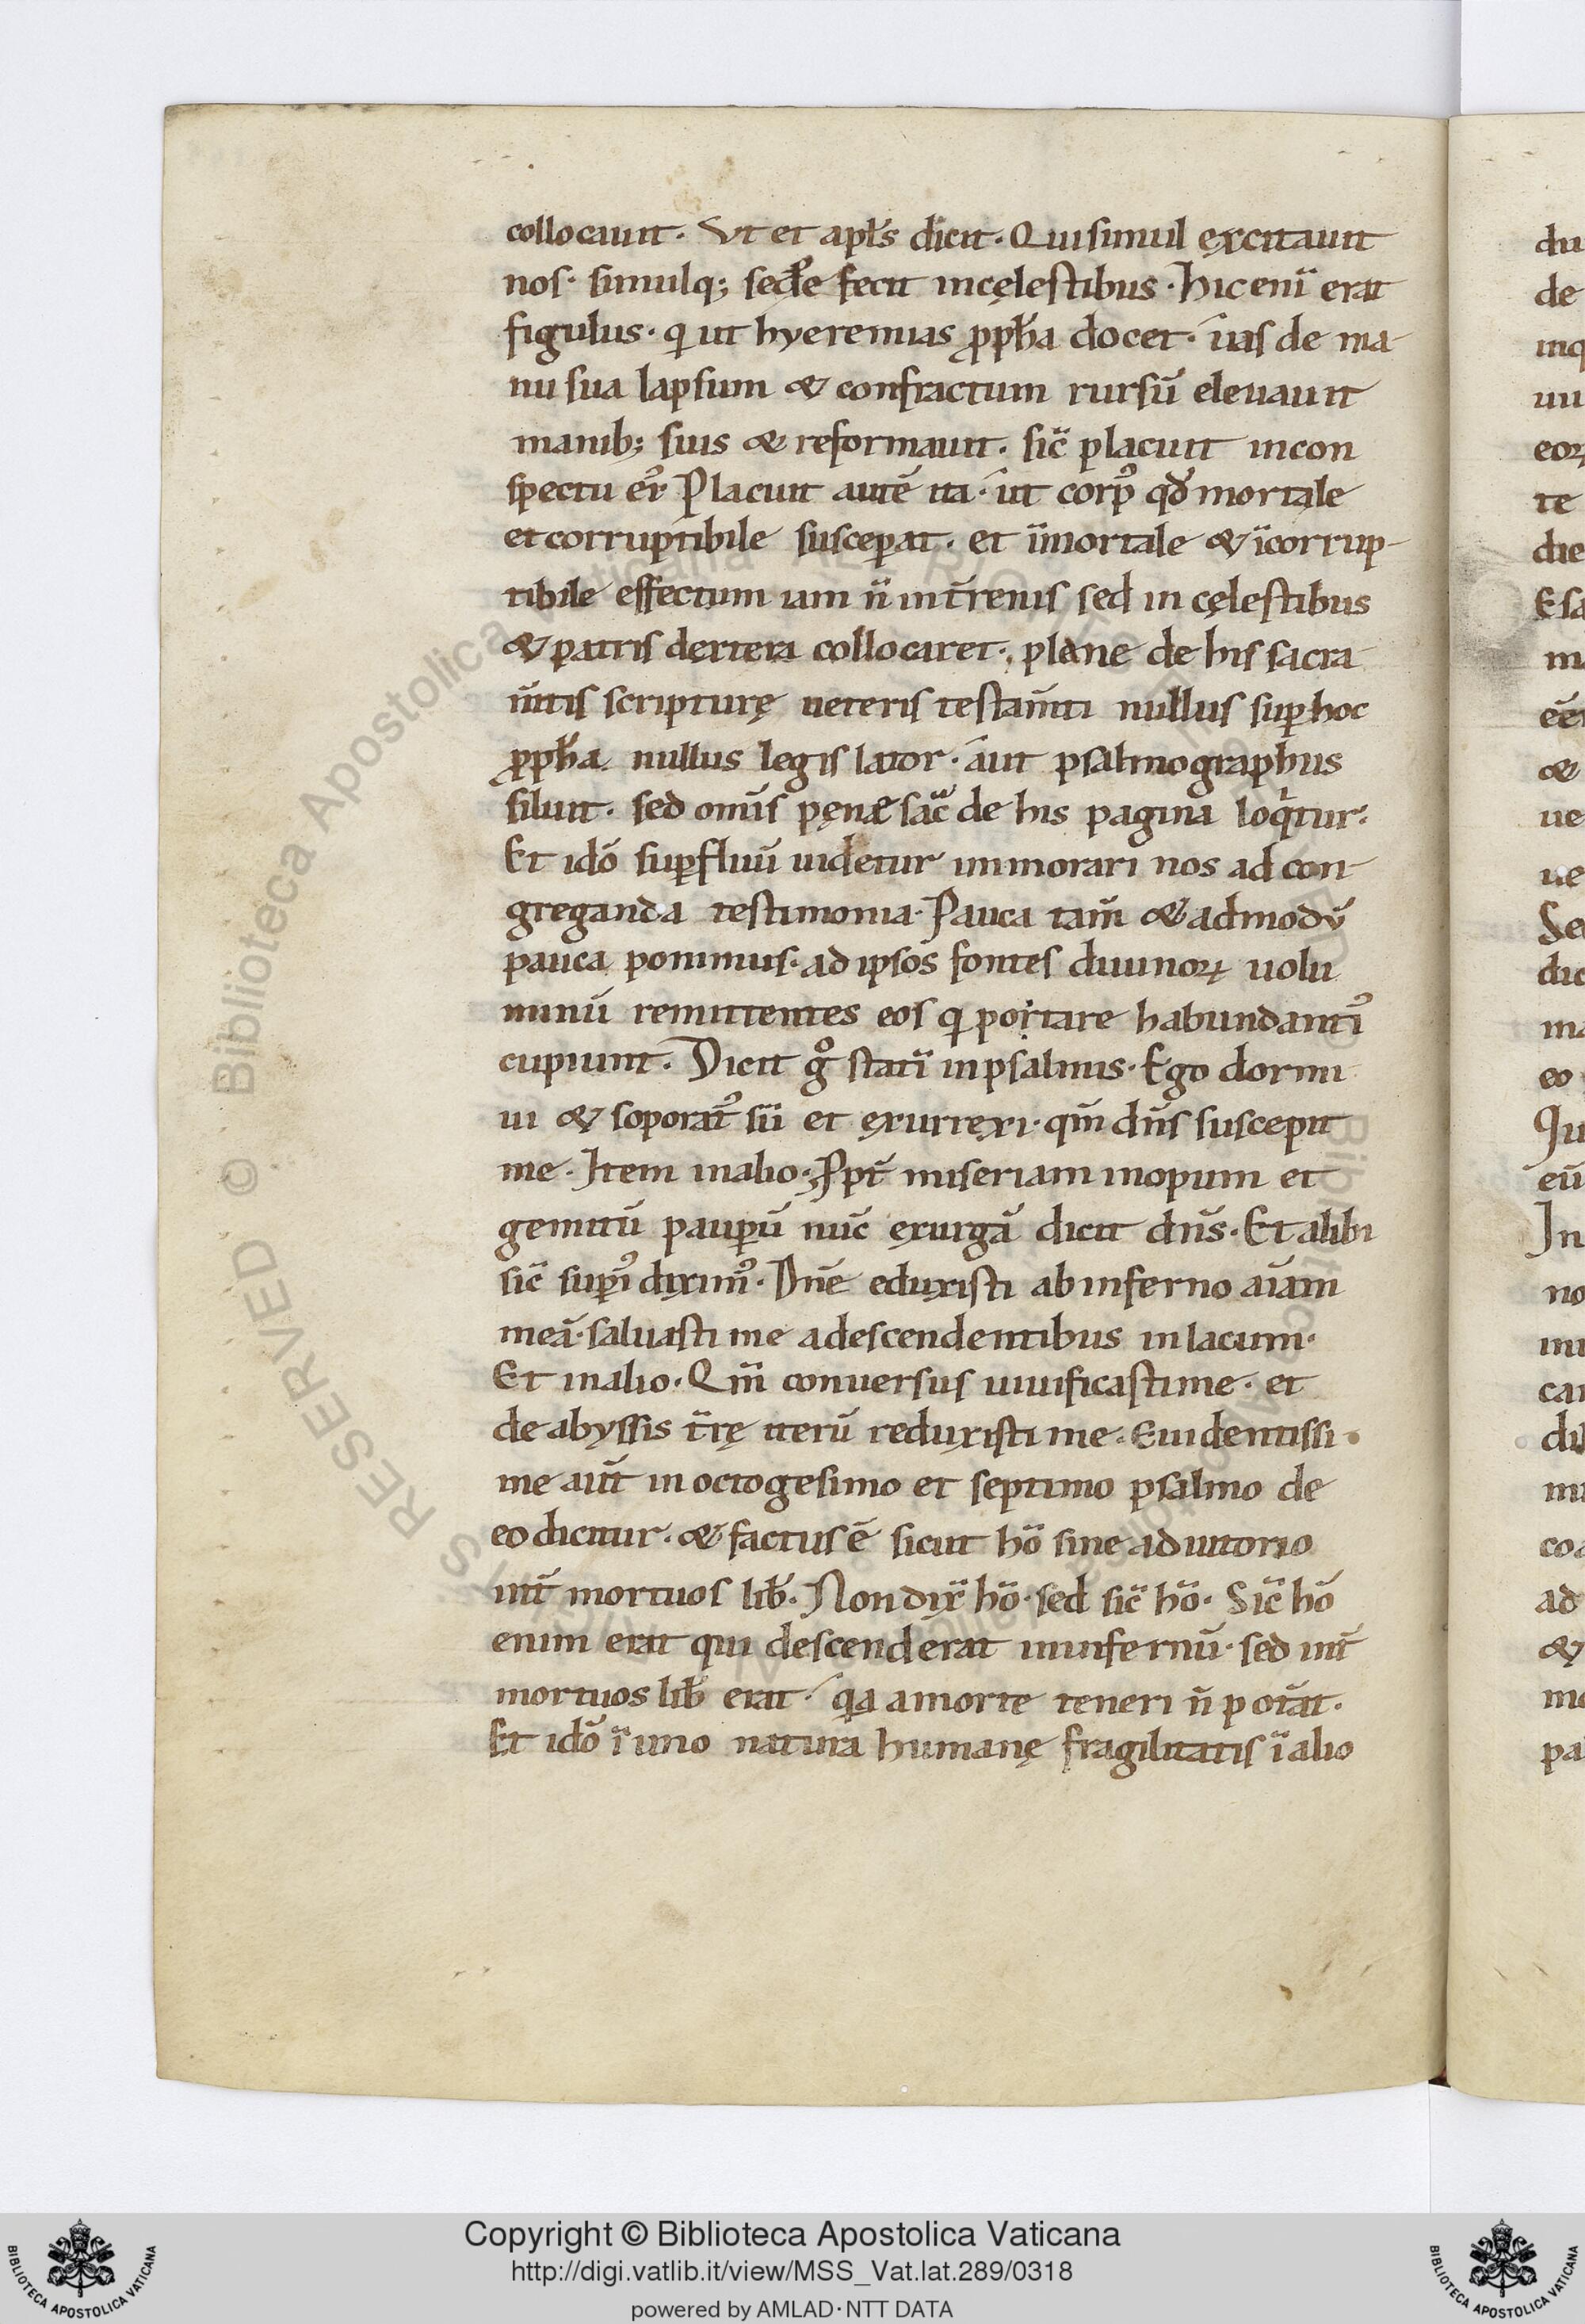 collocauit. Vt et apłs dicit. Qui simul excitauit
nos. simulq; sedꝰe fecit in cęlestibus. hic eni̅ erat
figulus. qi ut hyeremias ꝓpha docet. uas de ma-
nu sua lapsum & confractum rursū eleuauit
manib; suis & reformauit. sic̅ placuit in con
spectu ei̓. Placuit autē ita. ut corpꝰ qđ mortale
et corruptibile susceperat. et i̅mortale & i̅corrup-
tibile effectum iam n̅ in t̅renis sed in cęlestibus
& patris dextera collocaret. plane de his sacra
m̅tis scripturę ueteris testam̅ti nullus suꝑ hoc
ꝓpha. nullus legis lator. aut psalmographus
siluit. sed omīs pęnæ sac̅ de his pagina loqitur.
Et idō suꝑfluū uidetur immorari nos ad con-
greganda testimonia. Pauca tam̅ & admodū
pauca ponimus. ad ipsos fontes diuinoꝝ uolu
minū remittentes eos qi portare habundantiꝰ
cupiunt. Dicit gͦ stati̅ in psalmis. Ego dormi
ui & soporatꝰ su̅ et exurrexi. qm̅ dn̅s suscepit
me. Item in alio. Ppt̅ miseriam inopum et
gemitū pauꝑū nūc exurgā dicit dn̅s. Et alibi
sic̅ suꝑiꝰ diximꝰ. Dn̅e eduxisti ab inferno ai̅am
meā. saluasti me a descendentibus in lacum.
Et in alio. Qm̅ conuersus uiuificasti me. et
de abyssis t̅rę iterū reduxisti me. Euidentissi
me aut̅ in octogesimo et septimo psalmo de
eo dicitur. & factus ē sicut hō sine adiutorio
int̅ mortuos lib̅. Non dix̅ hō. sed sic̅ hō. Sic̅ hō
enim erat qui descenderat in infernū. sed int̅
mortuos lib̅ erat. qia a morte teneri n̅ pot̅at.
Et idō i̅ uno natura humanę fragilitatis i̅ alio
du
de
inq
uu
eoꝝ
te
die
Esa
ma
&
ue
ue
Se
dic
ma
eo
Qu
eū
In
no
mi
car
di
mi
co
ad
&
mo
pa
RESERVED © Biblioteca Apostolica Vaticana
Copyright © Biblioteca Apostolica Vaticana
http://digi.vatlib.it/view/MSS_Vat.lat.289/0318
powered by AMLAD·NTT DATA
BIBLIOTECA APOSTOLICA VATICANA
BIBLIOTECA APOSTOLICA VATICANA